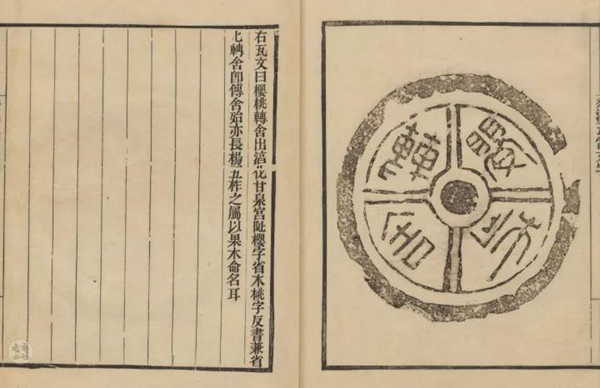 嬰桃
轉舍
右瓦文曰櫻桃轉舍出淳化甘泉宮阯櫻字省木桃字反書兼省
轉舍卽傳舍殆亦長楊五柞之屬以果木命名耳